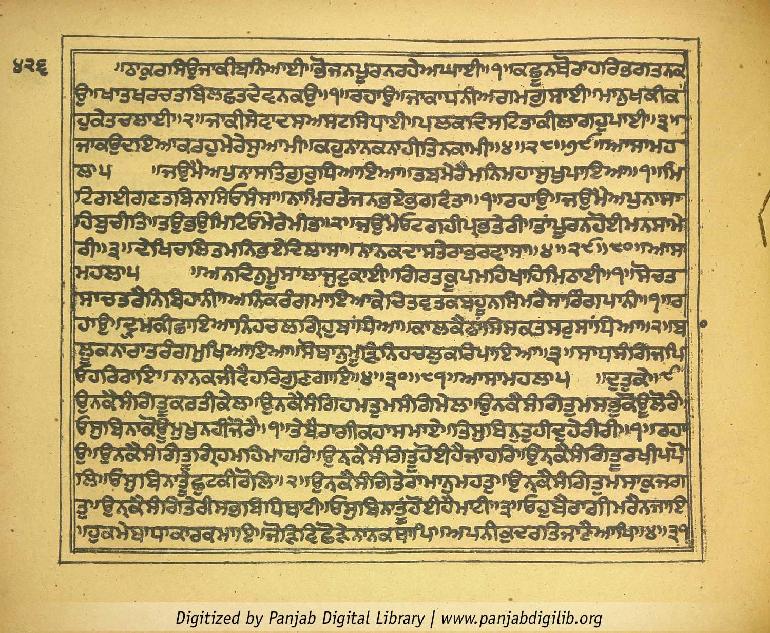 ੪੨੬
॥ਠਾਕੁਰਸਿਉਜਾਕੀਬਨਿਆਈ॥ਭੋਜਨਪੂਰਨਰਹੇਅਘਾਈ॥੧॥ਕਛੂਨਥੋਰਾਹਰਿਭਗਤਨਕ
ਉ॥ਖਾਤਖਰਚਤਬਿਲਛਤਦੇਵਨਕਉ॥੧॥ਰਹਾਉ॥ਜਾਕਾਧਨੀਅਗਮਗੁਸਾਈ॥ਮਾਨੁਖਕੀਕ
ਹੁਕੇਤਚਲਾਈ॥੨॥ਜਾਕੀਸੇਵਾਦਸਅਸਟਸਿਧਾਈ॥ਪਲਕਦਿਸਟਿਤਾਕੀਲਾਗਹੁਪਾਈ॥੩॥
ਜਾਕਉਦਇਆਕਰਹੁਮੇਰੇਸੁਆਮੀ॥ਕਹੁਨਾਨਕਨਾਹੀਤਿਨਕਾਮੀ॥੪॥੨੮॥੭੯॥ਆਸਾਮਹ
ਲਾ੫ ॥ਜਉਮੈਅਪੁਨਾਸਤਿਗੁਰੁਧਿਆਇਆ॥ਤਬਮੇਰੈਮਨਿਮਹਾਸੁਖੁਪਾਇਆ॥੧॥ਮਿ
ਟਿਗਈਗਣਤਬਿਨਾਸਿਓਸੰਸਾ॥ਨਾਮਿਰਤੇਜਨਭਏਭਗਵੰਤਾ॥੧॥ਰਹਾਉ॥ਜਉਮੈਅਪੁਨਾਸਾ
ਹਿਬੁਚੀਤਿ॥ਤਉਭਉਮਿਟਿਓਮੇਰੇਮੀਤ॥੨॥ਜਉਮੈਓਟਗਹੀਪ੍ਰਭਤੇਰੀ॥ਤਾਂਪੂਰਨਹੋਈਮਨਸਾਮੇ
ਰੀ॥੩॥ਦੇਖਿਚਲਿਤਮਨਿਭਏਦਿਲਾਸਾ॥ਨਾਨਕਦਾਸਤੇਰਾਭਰਵਾਸਾ॥੪॥੨੯॥੮੦॥ਆਸਾ
ਮਹਲਾ੫ ॥ਅਨਦਿਨੁਮੂਸਾਲਾਜੁਟੁਕਾਈ॥ਗਿਰਤਕੂਪਮਹਿਖਾਹਿਮਿਠਾਈ॥੧॥ਸੋਚਤ
ਸਾਚਤਰੈਨਿਬਿਹਾਨੀ॥ਅਨਿਕਰੰਗਮਾਇਆਕੇਚਿਤਵਤਕਬਹੂਨਸਿਮਰੈਸਾਰਿੰਗਪਾਨੀ॥੧॥ਰ
ਹਾਉ॥ਦ੍ਰੁਮਕੀਛਾਇਆਨਿਹਚਲਗ੍ਰਿਹੁਬਾਂਧਿਆ॥ਕਾਲਕੈਫਾਂਸਿਸਕਤਸਰੁਸਾਂਧਿਆ॥੨॥ਬ
ਾਲੂਕਨਾਰਾਤਰੰਗਮੁਖਿਆਇਆ॥ਸੋਥਾਨੁਮੂੜਿਨਿਹਚਲੁਕਰਿਪਾਇਆ॥੩॥ਸਾਧਸੰਗਿਜਪਿ
ਓਹਰਿਰਾਇ॥ਨਾਨਕਜੀਵੈਹਰਿਗੁਣਗਾਇ॥੪॥੩੦॥੮੧॥ਆਸਾਮਹਲਾ੫ ॥ਦੁਤੁਕੇ੯॥
ਉਨਕੈਸੰਗਿਤੂਕਰਤੀਕੇਲ॥ਉਨਕੈਸੰਗਿਹਮਤੁਮਸੰਗਿਮੇਲ॥ਉਨਕੈਸੰਗਿਤੁਮਸਭੁਕੋਊਲੋਰੈ॥
ਓਸੁਬਿਨਾਕੋਊਮੁਖੁਨਹੀਜੋਰੈ॥੧॥ਤੇਬੈਰਾਗੀਕਹਾਸਮਾਏ॥ਤਿਸੁਬਿਨੁਤੁਹੀਦੁਹੇਰੀਰੀ॥੧॥ਰਹਾ
ਉ॥ਉਨਕੈਸੰਗਿਤੂਗ੍ਰਿਹਮਹਿਮਾਹਰਿ॥ਉਨਕੈਸੰਗਿਤੂਹੋਈਹੈਜਾਹਰਿ॥ਉਨਕੈਸੰਗਿਤੂਰਖੀਪਪੋ
ਲਿ॥ਓਸੁਬਿਨਾਤੂੰਛੁਟਕੀਰੋਲਿ॥੨॥ਉਨਕੈਸੰਗਿਤੇਰਾਮਾਨੁਮਹਤੁ॥ਉਨਕੈਸੰਗਿਤੁਮਸਾਕੁਜਗ
ਤੁ॥ਉਨਕੈਸੰਗਿਤੇਰੀਸਭਬਿਧਿਥਾਟੀ॥ਓਸੁਬਿਨਾਤੂੰਹੋਈਹੈਮਾਟੀ॥੩॥ਓਹੁਬੈਰਾਗੀਮਰੈਨਜਾਇ
॥ਹੁਕਮੇਬਾਧਾਕਾਰਕਮਾਇ॥ਜੋੜਿਵਿਛੋੜੇਨਾਨਕਥਾਪਿ॥ਅਪਨੀਕੁਦਰਤਿਜਾਣੈਆਪਿ॥੪॥੩੧
Digitized by Panjab Digital Library | www.panjabdigilib.org